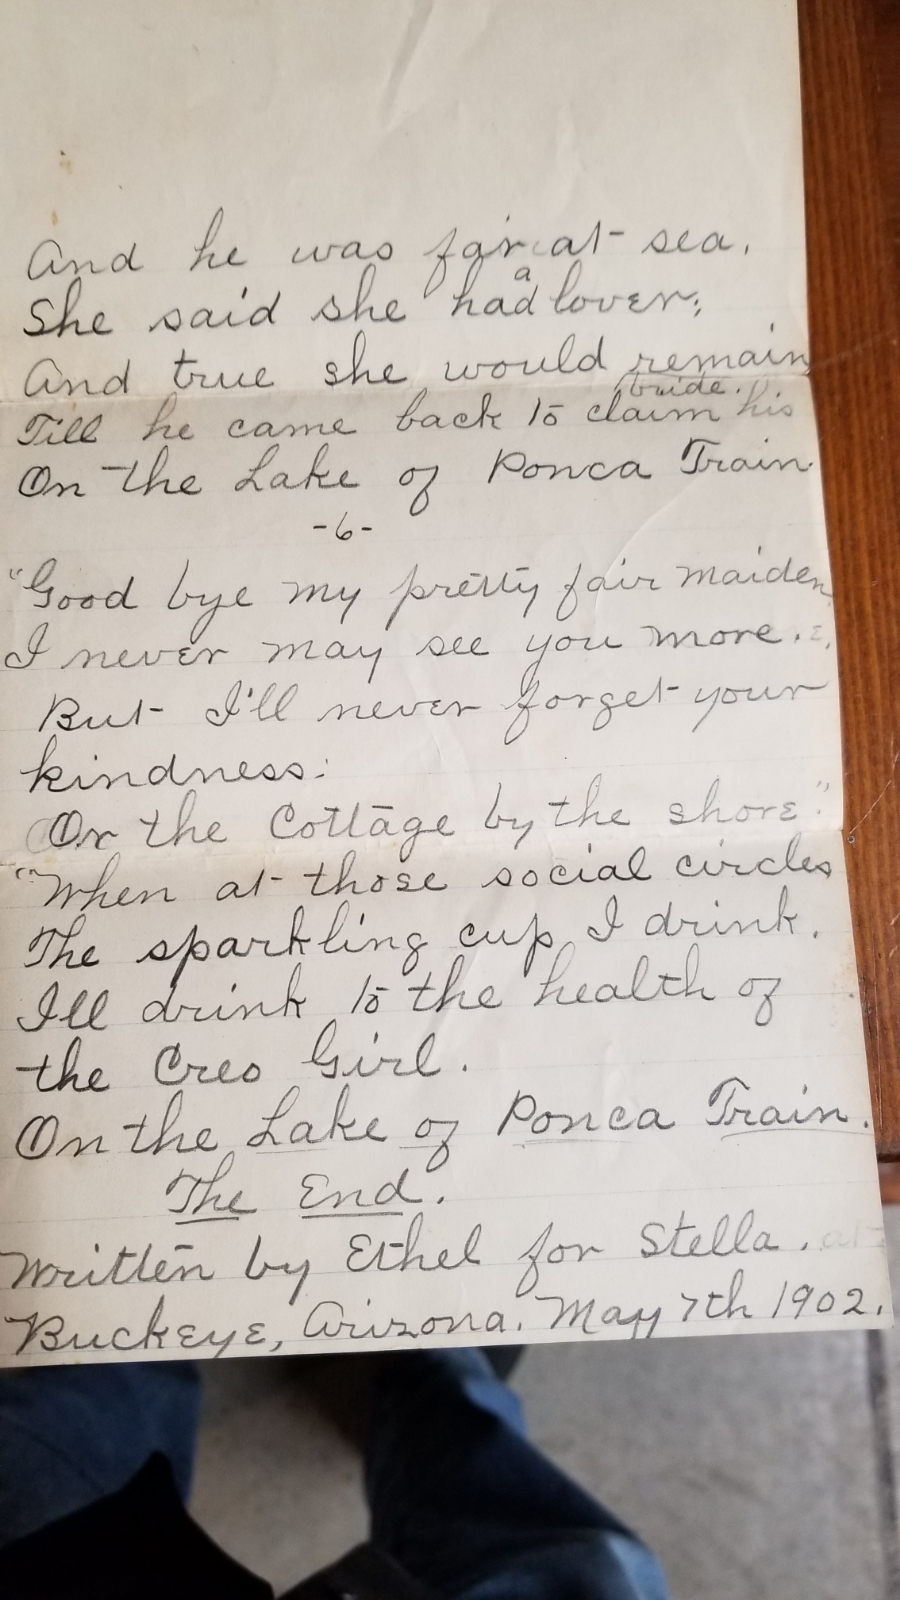 And he was far at sea.
She said she had a lover;
And true she would remain
Till he came back to claim his bride.
On the Lake of Ponca Train
-6-
"Good bye my pretty fair maiden
I never may see you more.
But I'll never forget your
kindness:
Or the Cottage by the shore."
"When at those social circles
The sparkling cup I drink.
I'll drink to the health of
the Creo Girl.
On the Lake of Ponca Train.
The End.
Written by Ethel for Stella. at
Buckeye, Arizona. May 7th 1902.